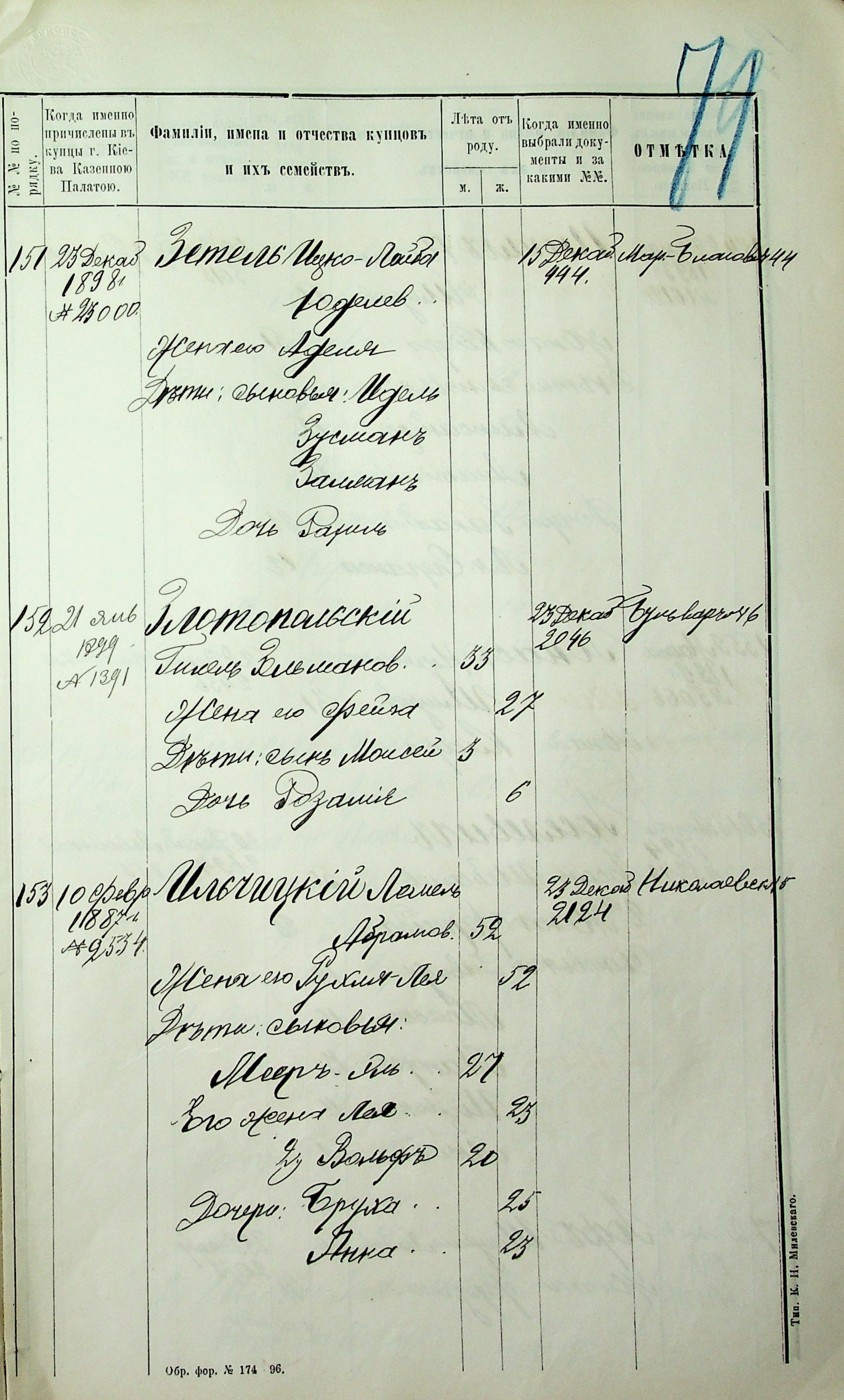 79
№ № по по-
рядку.
Когда именно
причислены въ
купцы г. Кіе-
ва Казенною
Палатою.
Фамиліи, имена и отчества купцовъ
и ихъ семействъ.
Лѣта отъ
роду.
м. ж.
Когда именно
выбрали доку-
менты и за
какими №№.
ОТМѢТКА
151 23 Декаб Зетель Ицко-Лейба 15 Декаб Мар.-Благов 144
1898 г 444.
№ 23000 Юделев..
Жена его Аделя
Дѣти: сыновья: Идель
Зусманъ
Залманъ
Дочь Рахиль
152 21 янв Злотопольскій 23 Декаб Бульварн 46
1899 2046
№ 1391 Гилель Зельманов.. 33
Жена его Фейга 27
Дѣти: сынъ Моисей 3
Дочь Розалія 6
153 10 Февр Ильчицкій Ламель 23 Декаб Николаевск
1887 г 2124
№ 2534 Абрамов. 52
Жена его Рухля-Лея 52
Дѣти: сыновья:
Мееръ-
.. 27
Его жена Лея.. 23
2) Вольфъ 20
Дочери: Бруха.. 25
Анна.. 23
Обр. фор. № 174 96.
Тип. К. Н. Милевскаго.